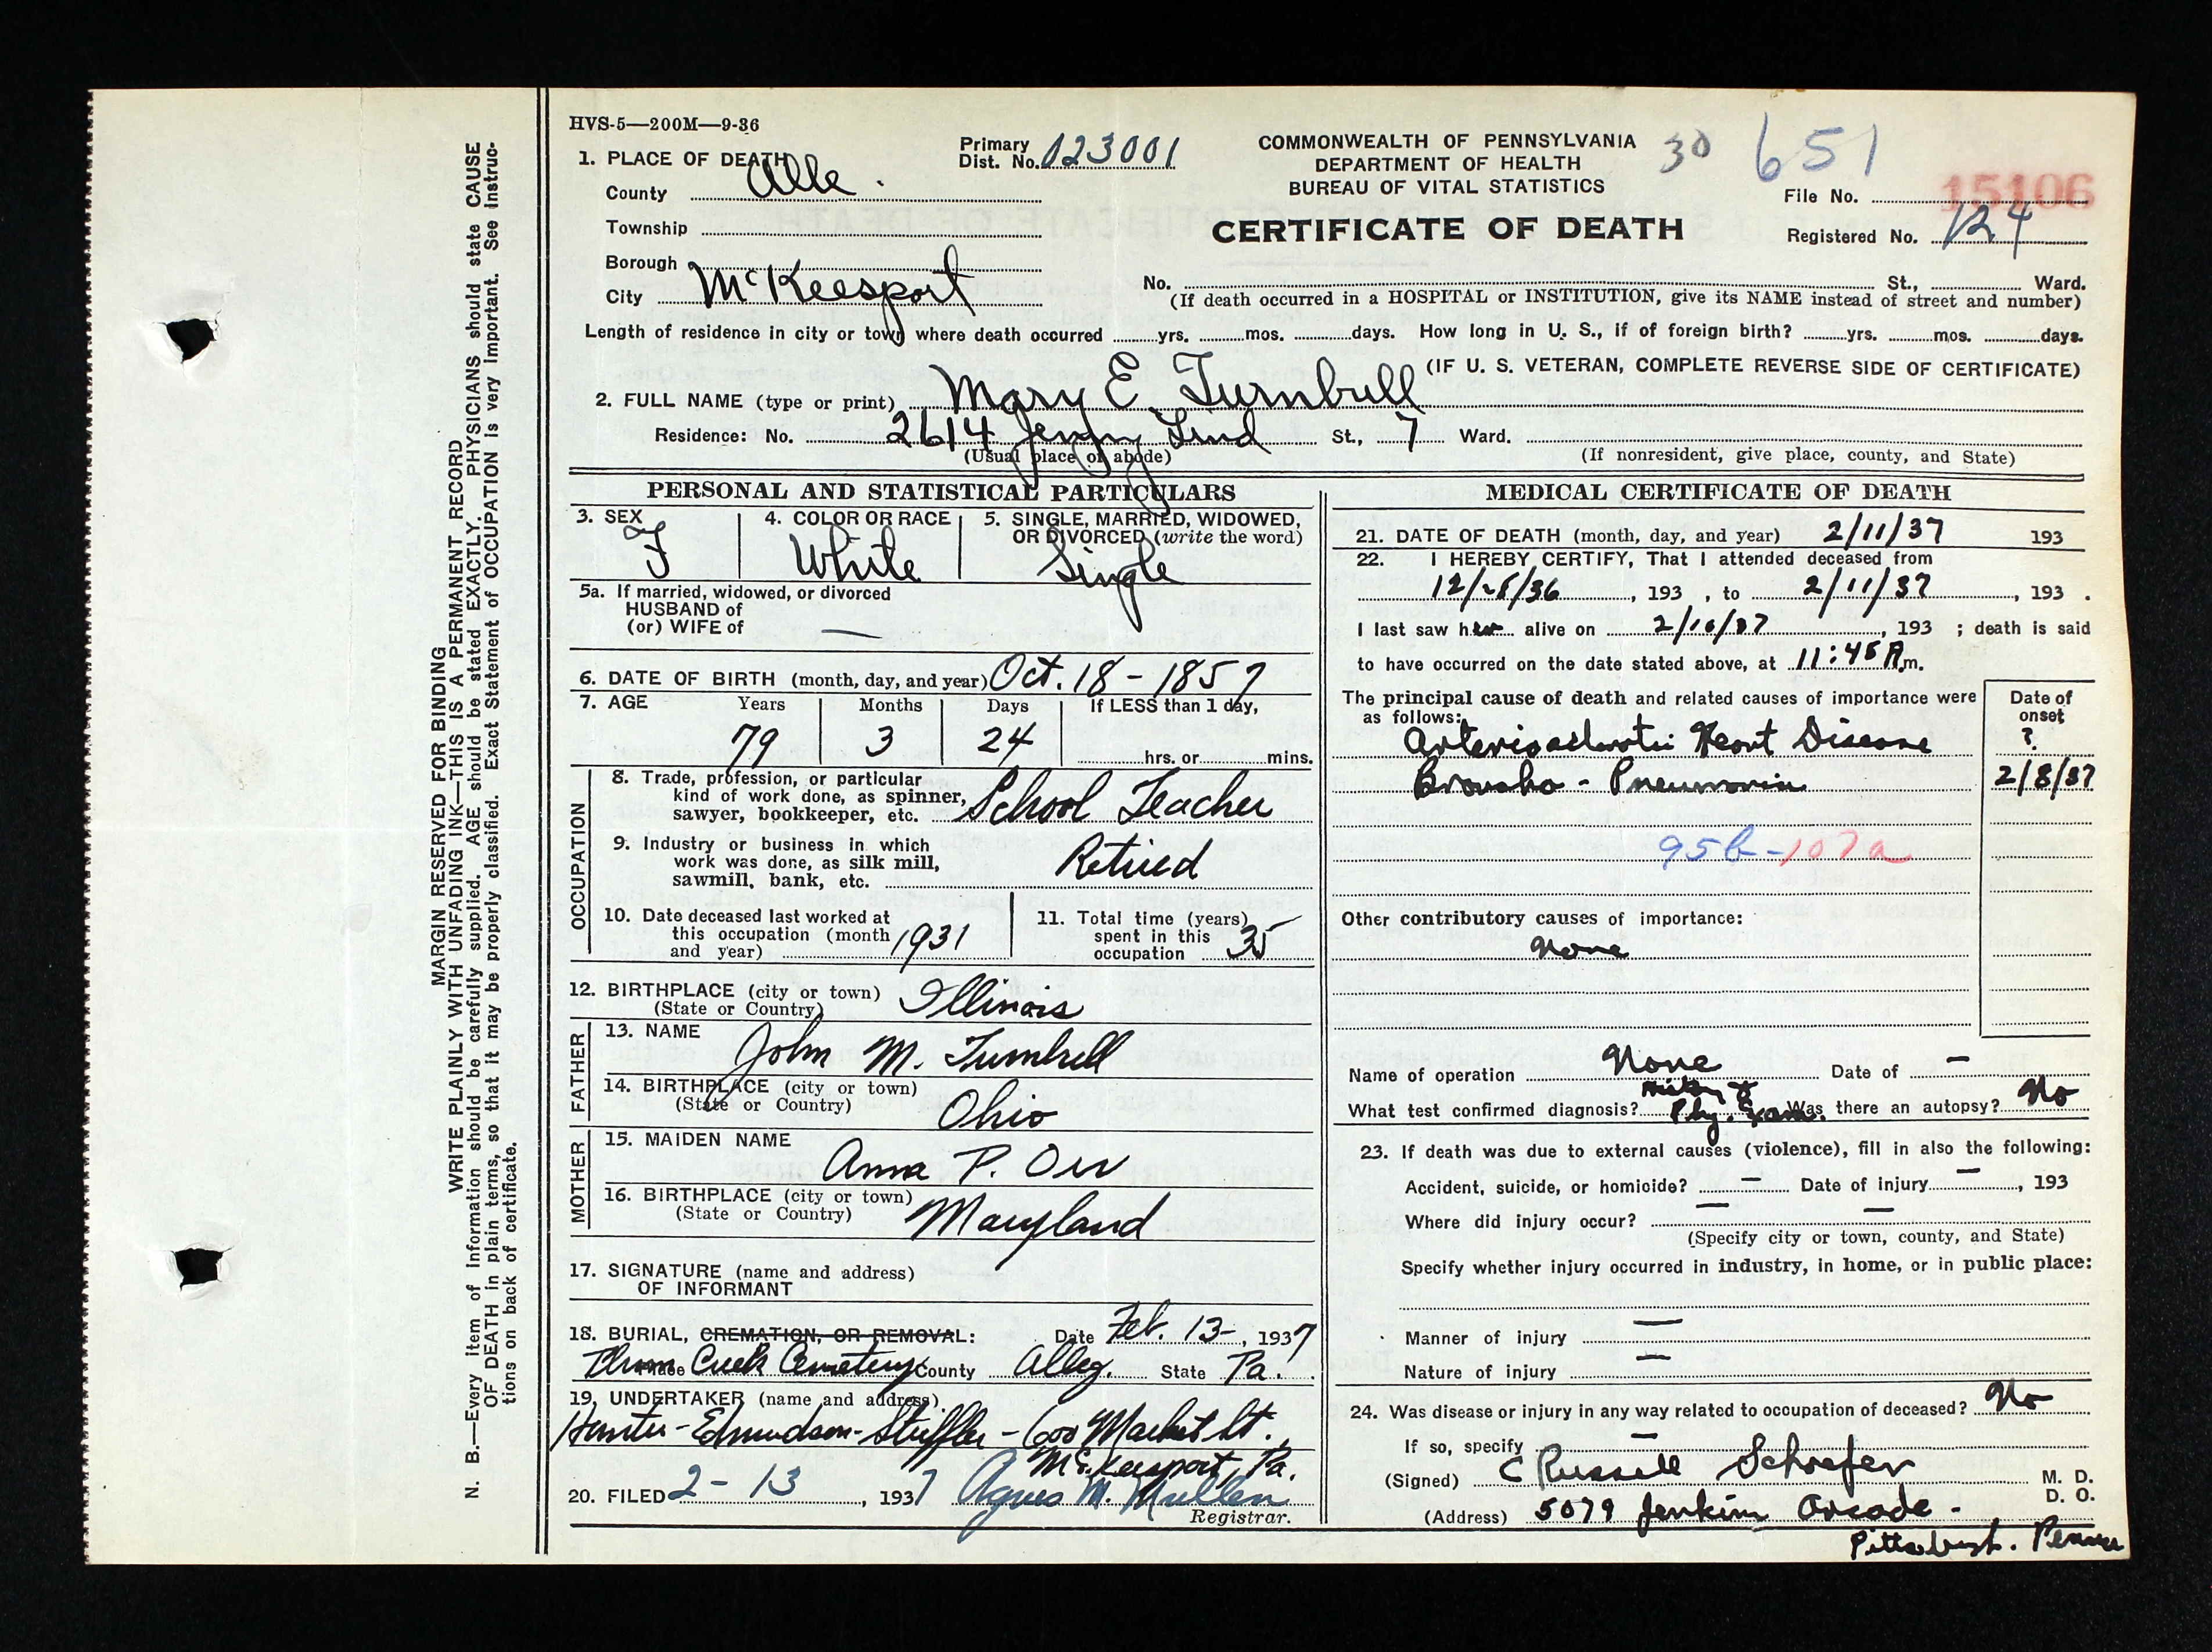 HVS-5—200M—9-36
1. PLACE OF DEATH
County Alle.
Township
Borough
City McKeesport
Primary Dist. No. 023001
COMMONWEALTH OF PENNSYLVANIA
DEPARTMENT OF HEALTH
BUREAU OF VITAL STATISTICS
CERTIFICATE OF DEATH
30 651
File No. 15106
Registered No. 124
No. St., Ward.
(If death occurred in a HOSPITAL or INSTITUTION, give its NAME instead of street and number)
Length of residence in city or town where death occurred yrs. mos. days. How long in U. S., if of foreign birth? yrs. mos. days.
(IF U. S. VETERAN, COMPLETE REVERSE SIDE OF CERTIFICATE)
2. FULL NAME (type or print) Mary E. Turnbull
Residence: No. 2614 Jenny Lind St., 7 Ward.
(Usual place of abode) (If nonresident, give place, county, and State)
PERSONAL AND STATISTICAL PARTICULARS
3. SEX F
4. COLOR OR RACE White
5. SINGLE, MARRIED, WIDOWED, OR DIVORCED (write the word) Single
5a. If married, widowed, or divorced
HUSBAND of
(or) WIFE of —
6. DATE OF BIRTH (month, day, and year) Oct. 18 - 1857
7. AGE Years Months Days If LESS than 1 day,
79 3 24 hrs. or mins.
OCCUPATION
8. Trade, profession, or particular
kind of work done, as spinner,
sawyer, bookkeeper, etc. School Teacher
9. Industry or business in which
work was done, as silk mill,
sawmill, bank, etc. Retired
10. Date deceased last worked at
this occupation (month
and year) 1931
11. Total time (years)
spent in this
occupation 35
12. BIRTHPLACE (city or town) Illinois
(State or Country)
FATHER
13. NAME John M. Turnbull
14. BIRTHPLACE (city or town)
(State or Country) Ohio
MOTHER
15. MAIDEN NAME
Anna P. Orr
16. BIRTHPLACE (city or town)
(State or Country) Maryland
17. SIGNATURE (name and address)
OF INFORMANT
18. BURIAL, CREMATION, OR REMOVAL: Date Feb. 13-, 1937
Place Plum Creek Cemetery County Alleg. State Pa.
19. UNDERTAKER (name and address)
Hunter-Edmundson-Striffler - 600 Market St.,
McKeesport, Pa.
20. FILED 2 - 13, 1937 Agnes M. Mullen
Registrar.
MEDICAL CERTIFICATE OF DEATH
21. DATE OF DEATH (month, day, and year) 2/11/37 193
22. I HEREBY CERTIFY, That I attended deceased from
12/28/36, 193 , to 2/11/37, 193 .
I last saw her alive on 2/10/37, 193 ; death is said
to have occurred on the date stated above, at 11:45 A.m.
The principal cause of death and related causes of importance were
as follows:
Date of onset
Arteriosclerotic Heart Disease ?
Broncho - Pneumonia 2/8/37
95b-107a
Other contributory causes of importance:
None
Name of operation None Date of —
What test confirmed diagnosis? History & Phy. Exam. Was there an autopsy? No
23. If death was due to external causes (violence), fill in also the following:
Accident, suicide, or homicide? — Date of injury —, 193
Where did injury occur? — —
(Specify city or town, county, and State)
Specify whether injury occurred in industry, in home, or in public place:
Manner of injury —
Nature of injury —
24. Was disease or injury in any way related to occupation of deceased? No
If so, specify —
(Signed) C Russell Schaefer M. D.
D. O.
(Address) 5079 Jenkins Arcade -
Pittsburgh. Penna
MARGIN RESERVED FOR BINDING
WRITE PLAINLY WITH UNFADING INK—THIS IS A PERMANENT RECORD
N. B.—Every item of information should be carefully supplied. AGE should be stated EXACTLY. PHYSICIANS should state CAUSE
OF DEATH in plain terms, so that it may be properly classified. Exact Statement of OCCUPATION is very important. See Instruc-
tions on back of certificate.